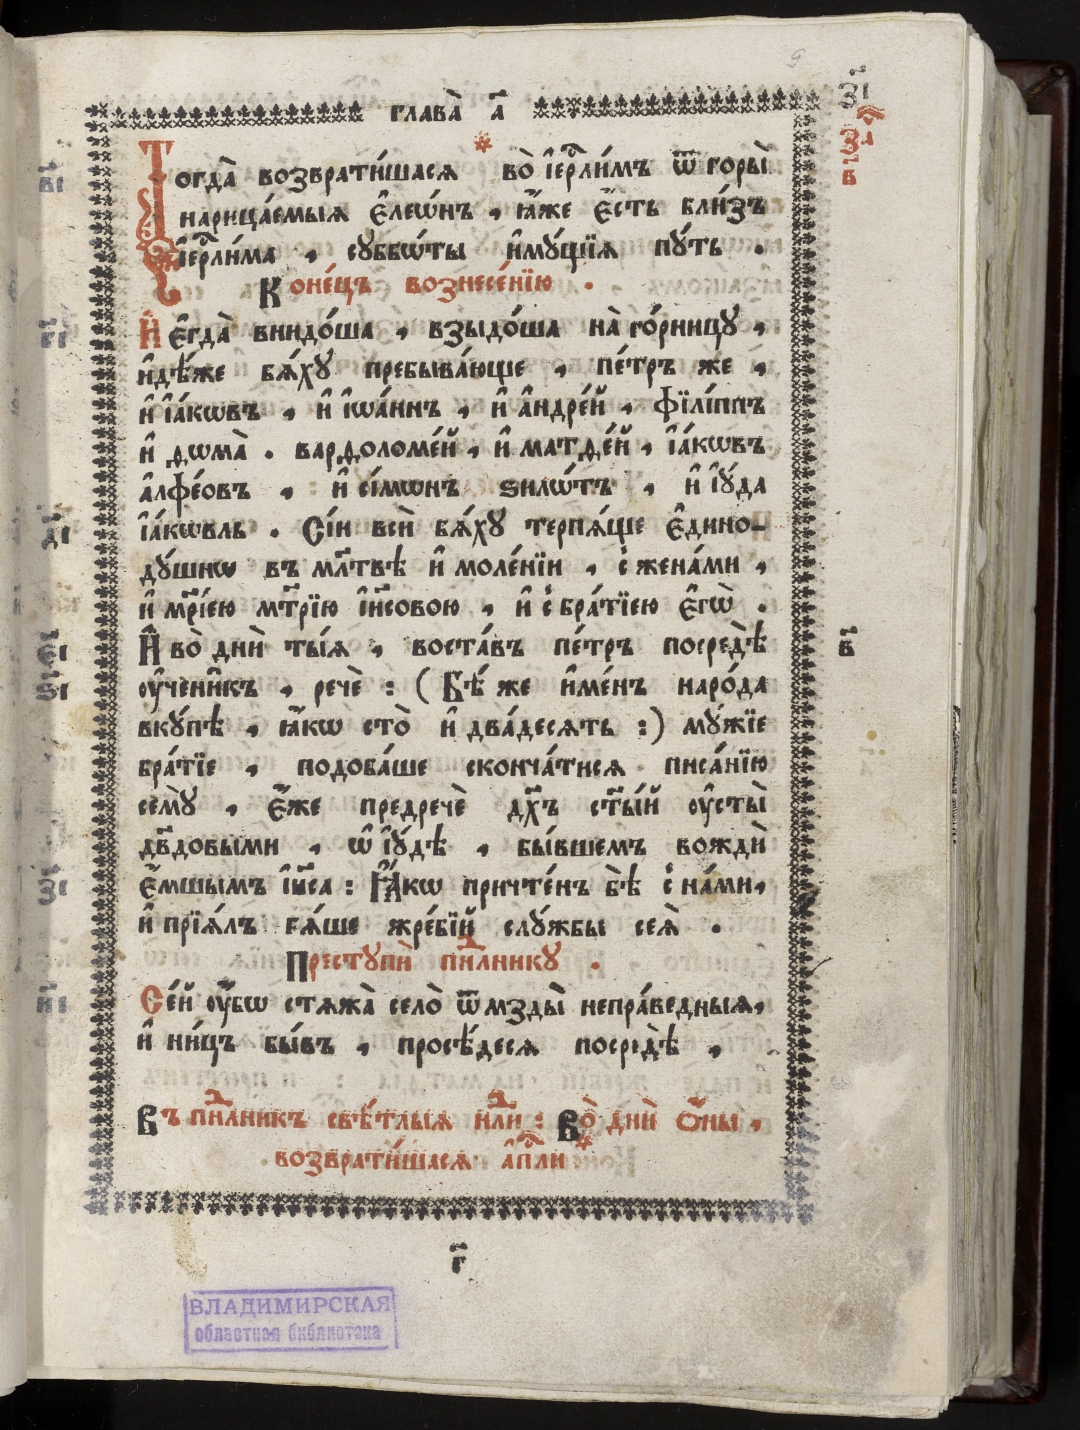 глава̀ а҃
з҃і
за҃
в҃
Тогда̀ возврати́шася * во̀ і҆ерⷭ҇ли́мъ ѿ горы̀
в҃і
нарица́емыя є҆леѡ́нъ , ꙗ҆́же є҆́сть бли́зъ
і҆ерⷭ҇ли́ма , сꙋббѡ́ты и҆мꙋ́щїя пꙋ́ть .
Коне́цъ вознесе́нїю .
г҃і
И҆ є҆гда̀ внидо́ша , взыдо́ша на̀ го́рницꙋ ,
и҆дѣ́же бѧ́хꙋ пребыва́юще , пе́тръ же ,
и҆ і҆а́кѡвъ , и҆ і҆ѡа́ннъ , и҆ а҆ндре́й , фїлі́ппъ
и҆ ѳѡма̀ . варѳоломе́й , и҆ матѳе́й , і҆а́кѡвъ
а҆лфе́овъ , и҆ сі́мѡнъ ѕилѡ́тъ , и҆ і҆ꙋ́да
і҆а́кѡвль . Сі́и всѝ бѧ́хꙋ терпѧ́ще є҆дино-
д҃і
дꙋ́шнѡ въ мл҃твѣ и҆ моле́нїи , с̾ жена́ми ,
и҆ мр҃і́ею мт҃рїю і҆и҃совою , и҆ с̾ бра́тїею є҆гѡ̀ .
є҃і
И҆ во̀ дни̑ ты́я , воста́въ пе́тръ посредѣ̀
в҃
ѕ҃і
оу҆чени̑къ , речѐ : ( Бѣ́ же и҆ме́нъ наро́да
вкꙋ́пѣ , ꙗ҆́кѡ сто̀ и҆ два́десять :) мꙋ́жїе
бра́тїе , подоба́ше сконча́тися писа́нїю
семꙋ̀ , є҆́же предречѐ дх҃ъ ст҃ы́й оу҆сты̀
дв҃довыми , ѡ҆ і҆ꙋ́дѣ , бы́вшемъ вождѝ
з҃і
є҆́мшымъ і҆и҃са : Ꙗ҆́кѡ причте́нъ бѣ̀ с̾ на́ми ,
и҆ прїя́лъ бѧ́ше жре́бїй слꙋ́жбы сея̀ .
Престꙋпѝ пⷣ҇лникꙋ .
и҃і
Се́й оу҆́бѡ стяжа̀ село̀ ѿ мзды̀ непра́ведныя ,
и҆ ни́цъ бы́въ , просѣ́деся посредѣ̀ ,
Въ пⷣ҇лникъ свѣ́тлыя нⷣ҇ли : Во̀ дни̑ ѻ҆́ны ,
возврати́шася а҆пⷭ҇ли *
г҃
ВЛАДИМИРСКАЯ
областная библиотека